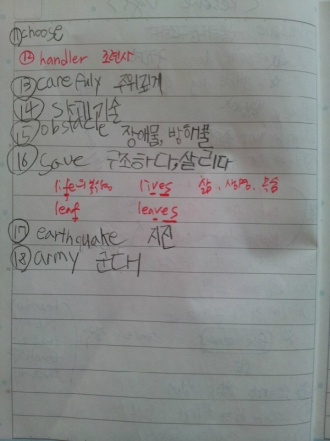 ⑪choose
⑫ handler 조련사
⑬carefuly 주위깊게
⑭
⑮obstacle 장애물, 방해물
⑯ save 구조하다, 살리다
life의 복수형 lives 삶, 생명, 목숨
leaf leaves
⑰ earthquake 지진
⑱ army 군대